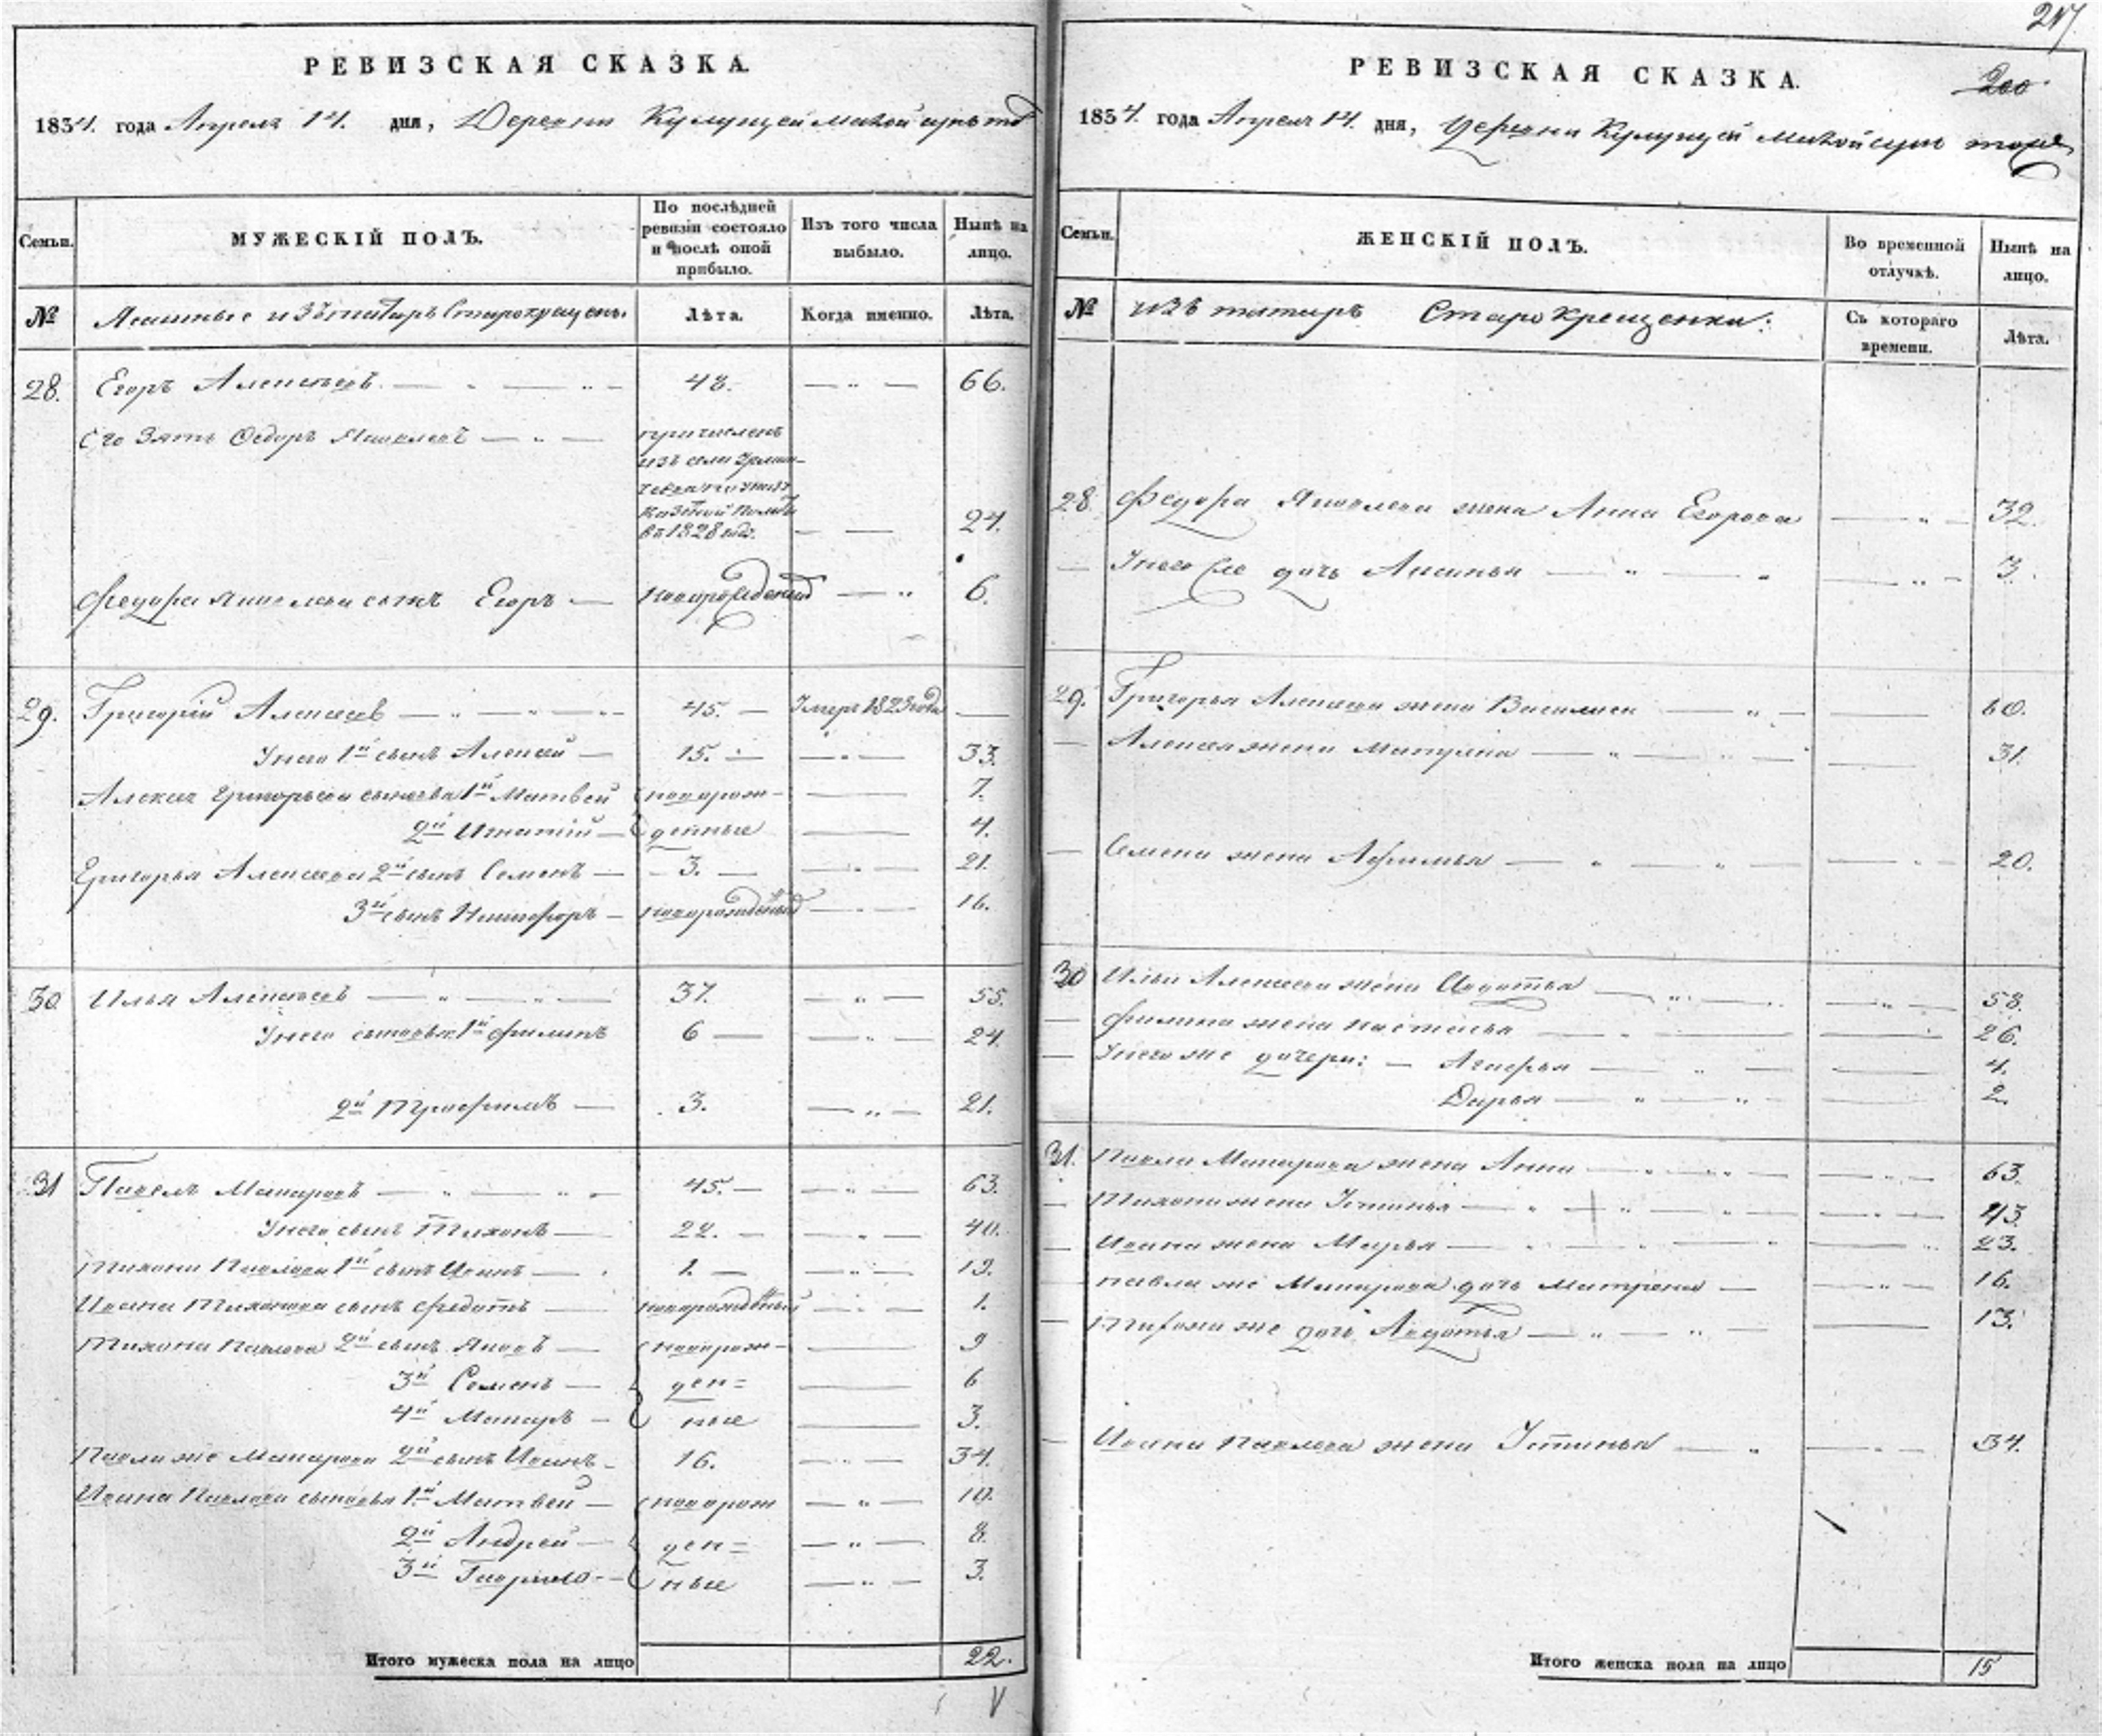 217
200
РЕВИЗСКАЯ СКАЗКА.
1834. года Апреля 14. дня, Деревни
Семьи.
МУЖЕСКІЙ ПОЛЪ.
По послѣдней ревизіи состояло и послѣ оной прибыло.
Изъ того числа выбыло.
Нынѣ на лицо.
№
Ясашные изъ татаръ Старокрещены.
Лѣта.
Когда именно.
Лѣта.
28. Егоръ Алексѣевъ 48. 66.
Его Зять Федоръ Яковлевъ причисленъ
изъ села
въ 1828 году. 24.
Федора Яковлева сынъ Егоръ новорожденный 6.
29. Григорій Алексеевъ 45. Умеръ 1823 года
У него 1й сынъ Алексей 15. 33.
Алексея Григорьева сыновья 1й Матвей новорож- 7.
2й Игнатій денные 4.
Григорья Алексеева 2й сынъ Семенъ 3. 21.
3й сынъ Никифоръ новорожденный 16.
30 Илья Алексѣевъ 37. 55.
У него сыновья: 1й Филипъ 6 24.
2й Трофимъ 3. 21.
31 Павелъ Макаровъ 45. 63.
У него сынъ Тихонъ 22. 40.
Тихона Павлова 1й сынъ Иванъ 1. 19.
Ивана Тихонова сынъ Федотъ новорожденный 1.
Тихона Павлова 2й сынъ Яковъ новорож- 9
3й Семенъ ден= 6
4й Макаръ ные 3.
Павла же Макарова 2й сынъ Иванъ 16. 34.
Ивана Павлова сыновья 1й Матвей новорож 10.
2й Андрей ден= 8.
3й Гаврило ные 3.
Итого мужеска пола на лицо 22.
РЕВИЗСКАЯ СКАЗКА.
1834. года Апреля 14. дня, Деревни
Семьи.
ЖЕНСКІЙ ПОЛЪ.
Во временной отлучкѣ.
Нынѣ на лицо.
№
изъ татаръ Старокрещенки:
Съ котораго времени.
Лѣта.
28 Федора Яковлева жена Анна Егорова 32.
У него же дочь Аксинья 3.
29. Григорья Алексеева жена Василиса 60.
Алексея жена Матрена 31.
Семена жена Афимья 20.
30 Ильи Алексеева жена Авдотья 58.
Филипа жена Настасья 26.
У него же дочери: 4.
Дарья 2.
31. Павла Макарова жена Анна 63.
Тихона жена Устинья 43.
Ивана жена Марья 23.
Павла же Макарова дочь Матрена 16.
Тихона же дочь Авдотья 13.
Ивана Павлова жена Устинья 34.
Итого женска пола на лицо 15